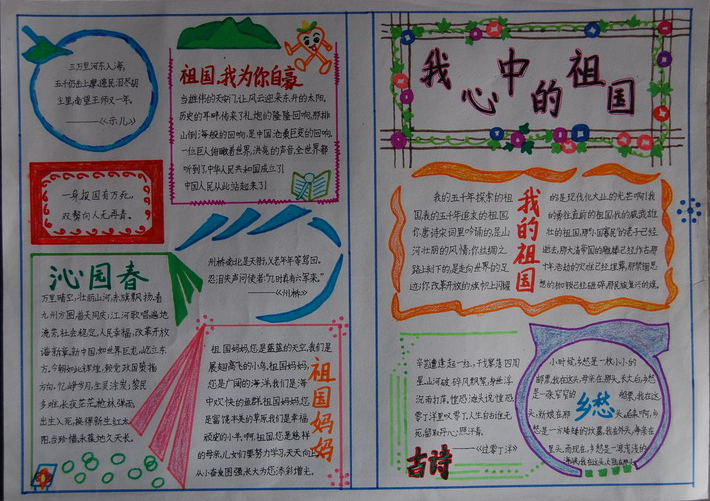 三万里河东入海,
五千仞岳上摩天,遗民泪尽胡
尘里,南望王师又一年。
——《示儿》
祖国,我为你自豪
当雄伟的天安门,让风云迎来东升的太阳,
历史的耳畔,传来了礼炮的隆隆回响,那排
山倒海般的回响,是中国沧桑巨变的回响,
一位巨人俯瞰世界,洪亮的声音,全世界都
听到了,中华人民共和国成立了!
中国人民从此站起来了!
一身报国有万死,
双鬓向人无再青。
州桥南北是天街,父老年年等驾回。
忍泪失声问使者:“几时真有六军来。”
——《州桥》
沁园春
万里晴空,壮丽山河,赤旗飘扬,看
九州方圆,普天同庆;江河歌唱,遍地
社会稳定,人民幸福,改革开放
谱新章,新中国,如世界巨龙,屹立东
方。今朝如此辉煌,
方向,忆峥嵘岁月,黎民
多难,长夜茫茫。枪林弹雨,
出生入死,换得新生红太
阳。当珍惜,永葆地久天长。
祖国妈妈
祖国妈妈,您是蓝蓝的天空,我们是
展翅高飞的小鸟,祖国妈妈,
您是广阔的海洋,我们是海
中欢快的鱼群,祖国妈妈,您
是富饶丰美的草原,我们是幸福
顽定的小羊,啊,祖国,您是慈祥
的母亲,儿女们要努力学习,天天向上,
从小奋发图强,长大为您添彩增光。
我心中的祖国
我的祖国
我的五千年探索的祖
国我的五千年追求的祖国
你唐诗宋词里吟诵的,是山
河壮丽的风情;你丝绸之
路上刻下的,是走向世界的足
迹;你改革开放的旗帜上闪耀
的是现代化大业的光芒啊!我
的勇往直前的祖国我的威武雄
壮的祖国,那个国害民的老子已经
逝去,那大清帝国的腌臜已经作古,那
十年浩劫的灾难已经埋葬,那禁锢思
想的枷锁已经砸碎,那民族复兴的道,
辛苦遭逢起一经,干戈寥落四周
星山河破碎风飘絮,身世浮
沉雨打萍,惶恐滩头说惶恐
零丁洋里叹零丁,人生自古谁无
死,留取丹心照汗青。
——《过零丁洋》
古诗
乡愁
小时候,乡愁是一枚小小的
邮票,我在这头,母亲在那头,长大后,乡愁
是一张窄窄的船票,我在这
头,新娘在那头。后来啊,乡
愁是一方矮矮的坟墓,我在外头,母亲在
里头,而现在,乡愁是一湾浅浅的
海峡,我在这头,大陆在那头。